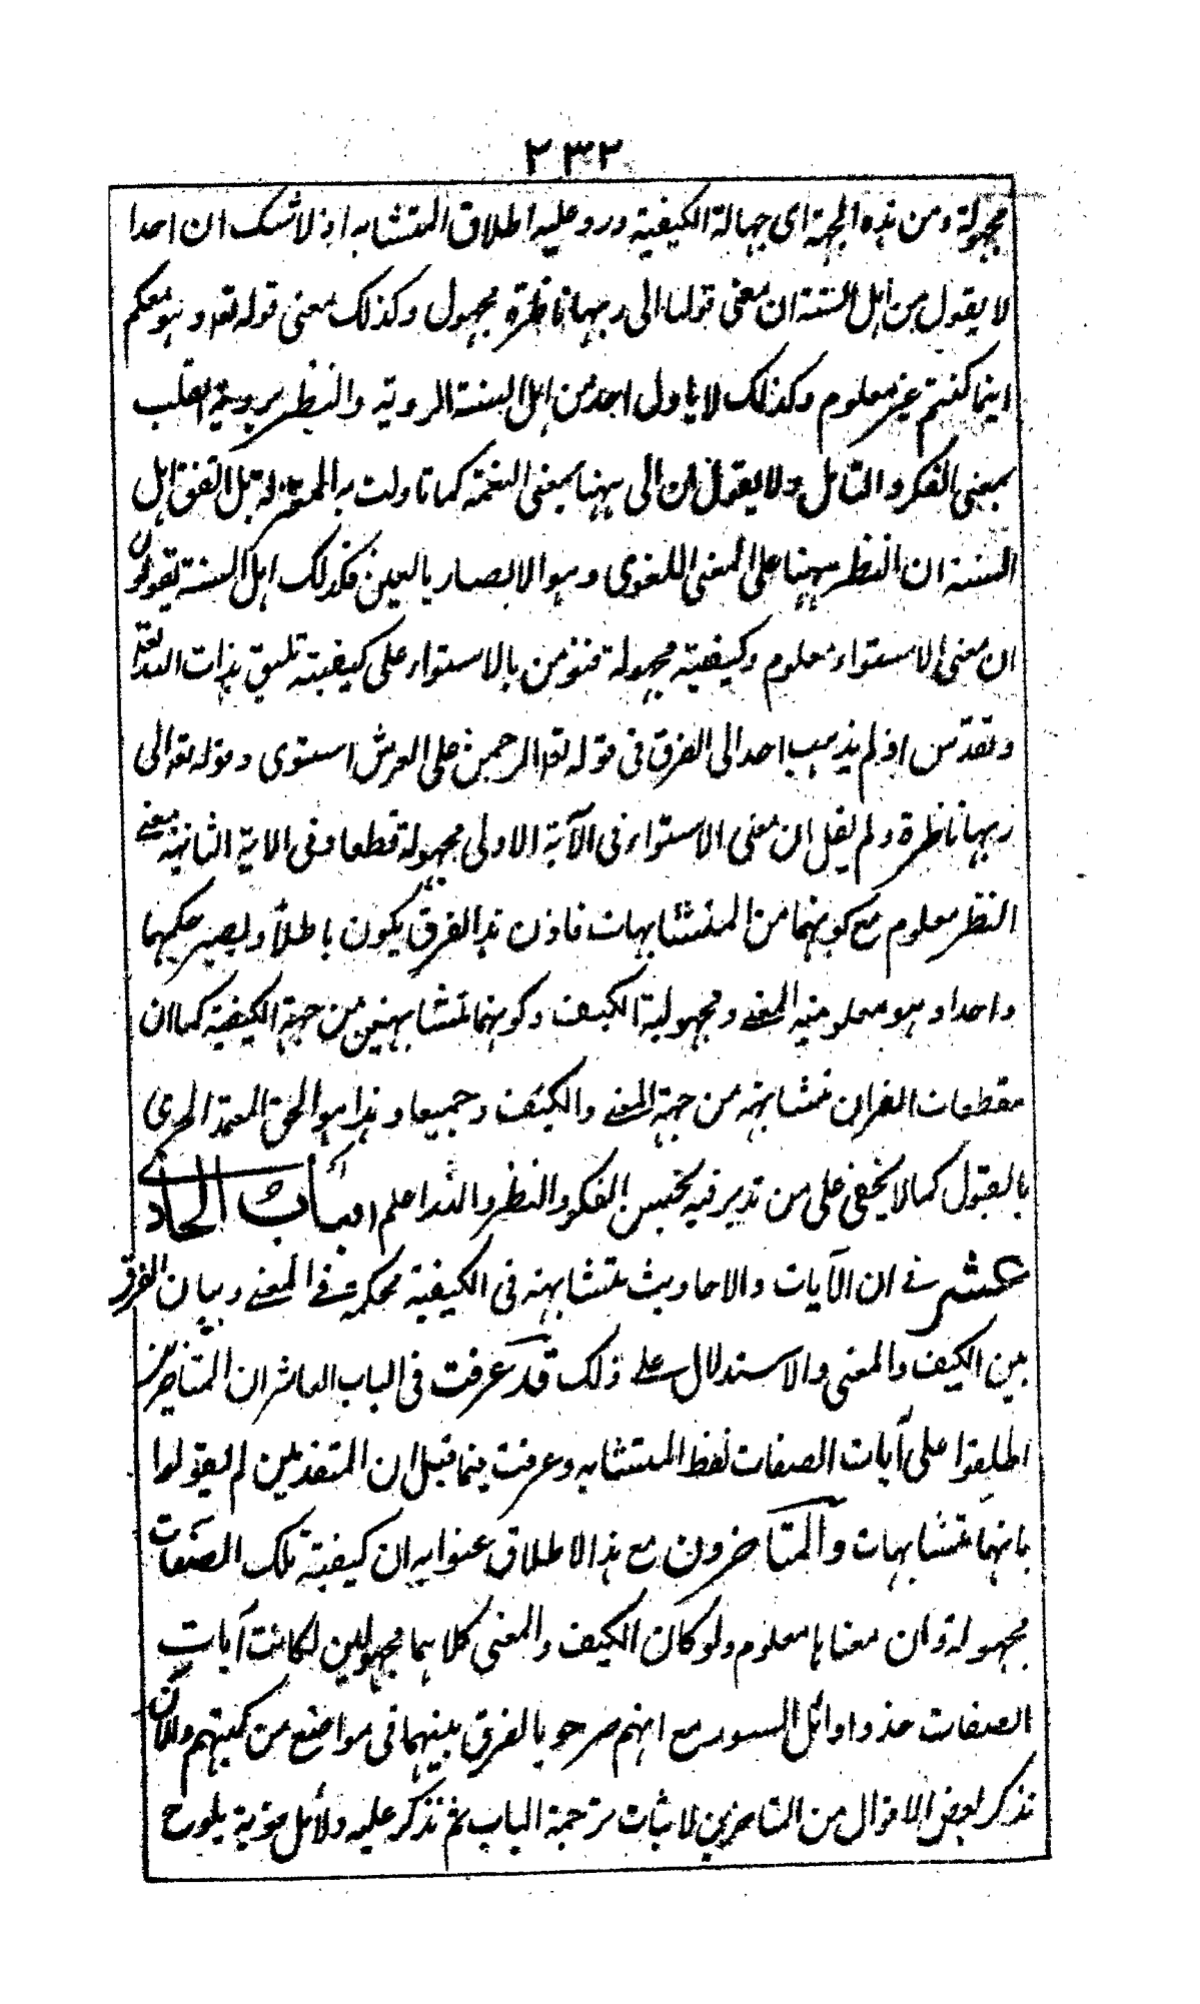 ٢٣٢
مجهولة ومن هذه الجهة اى جهالة الكيفية ورد عليه اطلاق المتشابه اذ لا شك ان احدا
لا يقول من اهل السنة ان معنى قولنا الى ربها ناظرة مجهول وكذلك معنى قوله تعه وهو معكم
اينما كنتم غير معلوم وكذلك لا ياول احد من اهل السنة الروية والنظر بروية القلب
بمعنى الفكر والتامل ولا يقول ان الى ههنا بمعنى النعمة كما تاولت به المعتزلة بل اتفق اهل
السنة ان النظر ههنا على المعنى اللغوى وهو الابصار بالعين فكذلك اهل السنة يقولون
ان معنى الاستواء معلوم وكيفية مجهولة فنؤمن بالاستواء على كيفية تليق بذات الله تعه
وتقدس اذ لم يذهب احد الى الفرق فى قوله تعه الرحمن على العرش استوى وقوله تعه الى
ربها ناظرة ولم يقل ان معنى الاستواء فى الآية الاولى مجهولة قطعا وفى الاية الثانية معنى
النظر معلوم مع كونهما من المتشابهات فاذن هذا الفرق يكون باطلاً ويصير حكمهما
واحدا وهو معلومية المعنى ومجهولية الكيف وكونهما متشابهين من جهة الكيفية كما ان
مقطعات القران متشابهة من جهة المعنى والكيف وجميعا وهذا هو الحق المعتمد الحرى
بالقبول كما لا يخفى على من تدبر فيه بخميس الفكر والنظر والله اعلم الباب الحادى
عشر فى ان الآيات والاحاديث متشابهة فى الكيفية محكمة فى المعنى وبيان الفرق
بين الكيف والمعنى والاستدلال على ذلك قد عرفت فى الباب العاشر ان المتاخرين
اطلقوا على آيات الصفات لفظ المتشابه وعرفت فيما قبل ان المتقدمين لم يقولوا
بانهما متشابهات والمتاخرون مع هذا الاطلاق عنوا به ان كيفية تلك الصفات
مجهولة وان معناها معلوم ولو كان الكيف والمعنى كلاهما مجهولين لكانت آيات
الصفات حذو اوائل السور مع انهم صرحو بالفرق بينهما فى مواضع من كتبهم والان
نذكر بعض الاقوال من المتاخرين لاثبات ترجمة الباب ثم نذكر عليه دلائل قوية يلوح